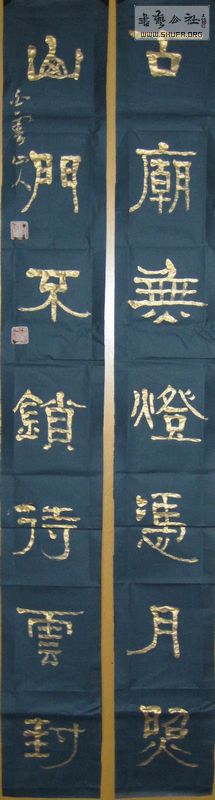 古廟無燈馮月照
山門不鎖待雲封
白雲山人
書藝公社
WWW.SHUFA.ORG